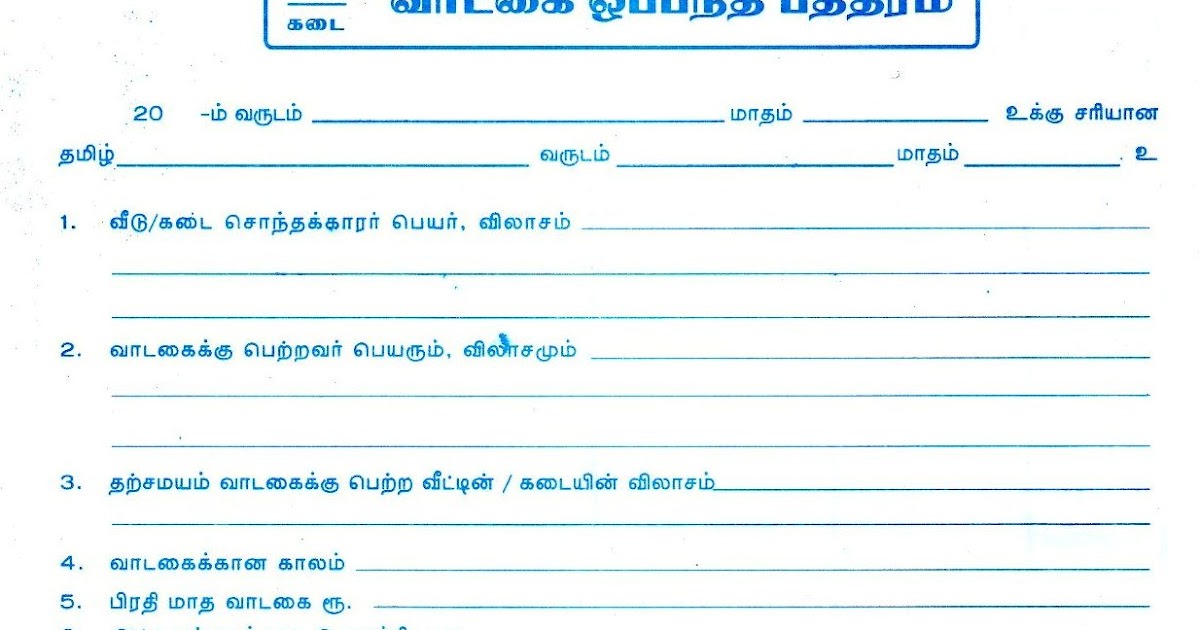 கடை
வாடகை ஒப்பந்த பத்திரம்
20 -ம் வருடம் மாதம் உக்கு சரியான
தமிழ் வருடம் மாதம் உ
1. வீடு/கடை சொந்தக்காரர் பெயர், விலாசம்
2. வாடகைக்கு பெற்றவர் பெயரும், விலாசமும்
3. தற்சமயம் வாடகைக்கு பெற்ற வீட்டின் / கடையின் விலாசம்
4. வாடகைக்கான காலம்
5. பிரதி மாத வாடகை ரூ.